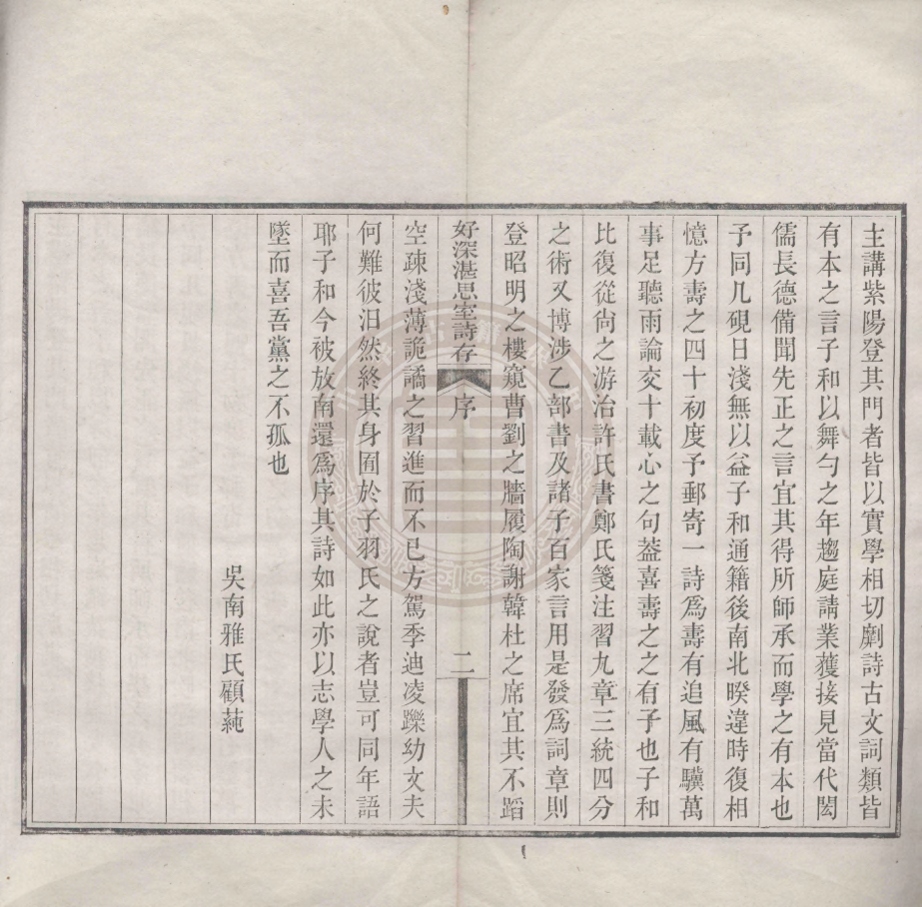 主講紫陽登其門者皆以實學相切劘詩古文詞類皆
有本之言子和以舞勺之年趨庭請業獲接見當代閎
儒長德備聞先正之言宜其得所師承而學之有本也
予同几硯日淺無以益子和通籍後南北暌違時復相
憶方壽之四十初度予郵寄一詩爲壽有追風有驥萬
事足聽雨論交十載心之句葢喜壽之之有子也子和
比復從尙之游治許氏書鄭氏箋注習九章三統四分
之術又博涉乙部書及諸子百家言用是發爲詞章則
登昭明之樓窺曹劉之牆履陶謝韓杜之席宜其不蹈
好深湛思室詩存 序 二
空疎淺薄詭譎之習進而不已方駕季迪凌躒幼文夫
何難彼汨然終其身囿於子羽氏之說者豈可同年語
耶子和今被放南還爲序其詩如此亦以志學人之未
墜而喜吾黨之不孤也
吳南雅氏顧蒓